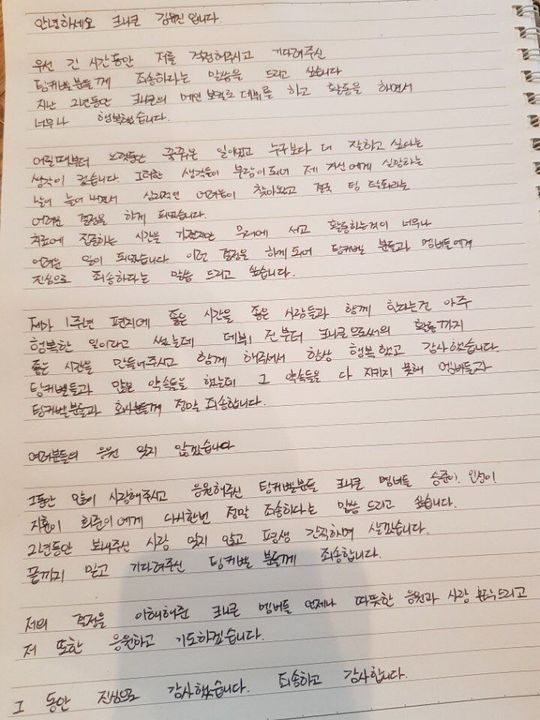 안녕하세요 크나큰 김유진입니다
우선 긴 시간동안 저를 걱정해주시고 기다려주신
팅커벨분들께 죄송하다는 말씀을 드리고 싶습니다
지난 2년동안 크나큰의 메인보컬로 데뷔를 하고 활동을 하면서
너무나 행복했습니다.
어릴때부터 노래라는 꿈뿐인 일이였고 누구보다 더 잘하고 싶다는
생각이 컸습니다. 그러한 생각들이 부담이 되어 제 자신에게 실망하는
날이 늘어나면서 심리적인 어려움이 찾아왔고 결국 팀 탈퇴라는
어려운 결정을 하게 되었습니다.
치료에 집중하는 시간을 가졌지만 무대에 서고 활동하는것이 너무나
어려운 일이 되었습니다 이런 결정을 하게되어 팅커벨 분들과 멤버들에게
진심으로 죄송하다는 말씀 드리고 싶습니다.
제가 1주년 편지에 좋은 시간을 좋은 사람들과 함께 한다는건 아주
행복한 일이라고 썼는데 데뷔 전부터 크나큰으로써의 활동까지
좋은 시간을 만들어주시고 함께 해주셔서 항상 행복했고 감사했습니다.
팅커벨들과 많은 약속들을 했는데 그 약속들을 다 지키지 못해 멤버들과
팅커벨분들과 회사분들께 정말 죄송합니다.
여러분들의 응원 잊지 않겠습니다
그동안 많이 사랑해주시고 응원해주신 팅커벨분들 크나큰 멤버들 승준이 인성이
지훈이 희준이에게 다시한번 정말 죄송하다는 말씀 드리고 싶습니다.
2년동안 보내주신 사랑 잊지 않고 평생 간직하며 살겠습니다.
끝까지 믿고 기다려주신 팅커벨 분들께 죄송합니다.
저의 결정을 이해해준 크나큰 멤버들 언제나 따뜻한 응원과 사랑 부탁드리고
저 또한 응원하고 기도하겠습니다.
그 동안 진심으로 감사했습니다. 죄송하고 감사합니다.